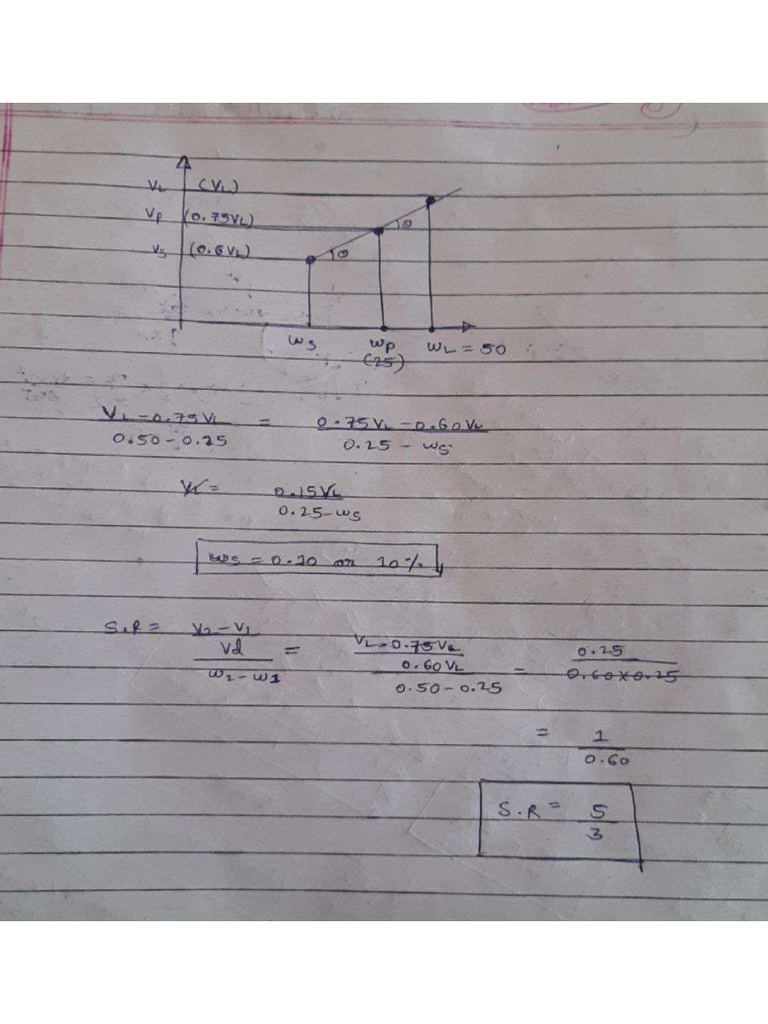 VL (VL)
VP (0.75VL)
θ
VS (0.6VL)
θ
ws wp wL = 50
(25)
VL - 0.75VL / 0.50 - 0.25 = 0.75VL - 0.60VL / 0.25 - ws
VL = 0.15VL / 0.25 - ws
ws = 0.10 or 10%
S.R = V2 - V1 / Vd / w2 - w1 = VL - 0.75VL / 0.60VL / 0.50 - 0.25 = 0.25 / 0.60 x 0.25
= 1 / 0.60
S.R = 5 / 3